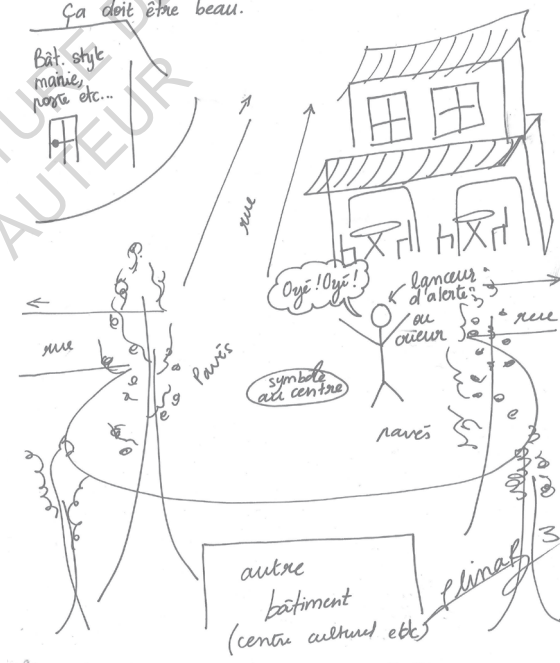 Ça doit être beau.
Bât. style
mairie,
poste etc...
rue
Oyé ! Oyé !
lanceur
d'alerte
ou
crieur
rue
rue
Pavés
symbole
au centre
pavés
autre
bâtiment
(centre culturel etc)
TURE D
AUTEUR